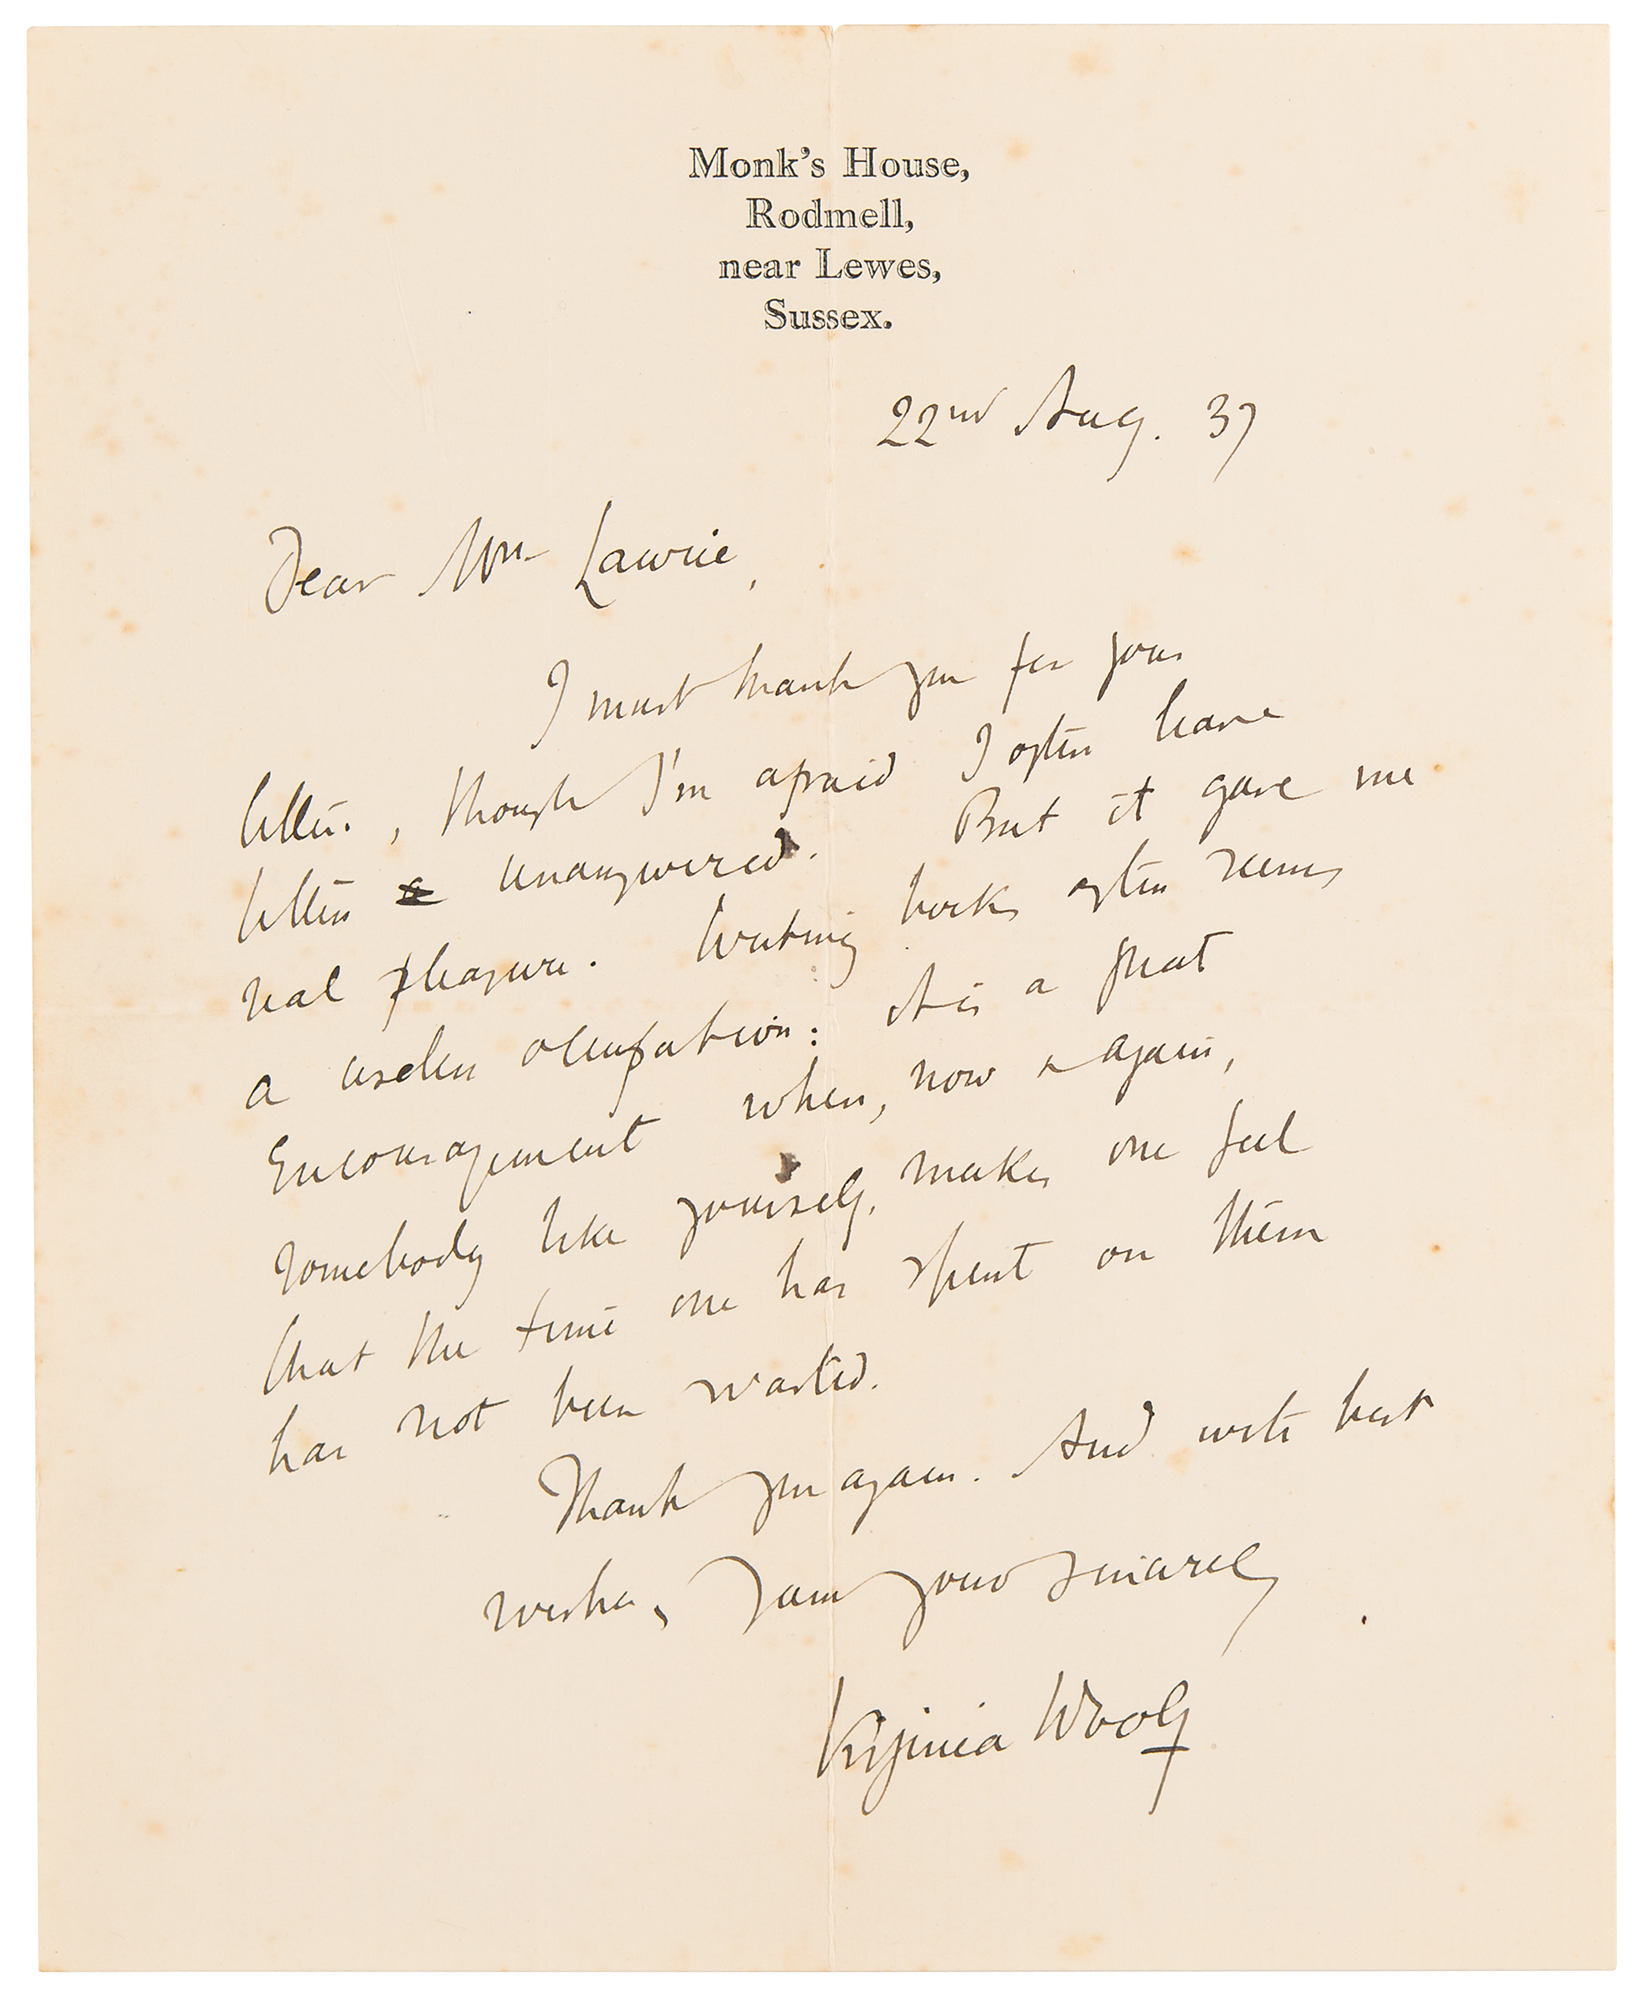 Monk's House,
Rodmell,
near Lewes,
Sussex.
22nd Aug. 37
Dear Mrs Lawrie,
I must thank you for your
letter, though I'm afraid I often leave
letters unanswered. But it gave me
real pleasure. Writing books often seems
a useless occupation: it is a great
encouragement when, now & again,
somebody like yourself, makes one feel
that the time one has spent on them
has not been wasted.
Thank you again. And with best
wishes, I am yours sincerely
Virginia Woolf